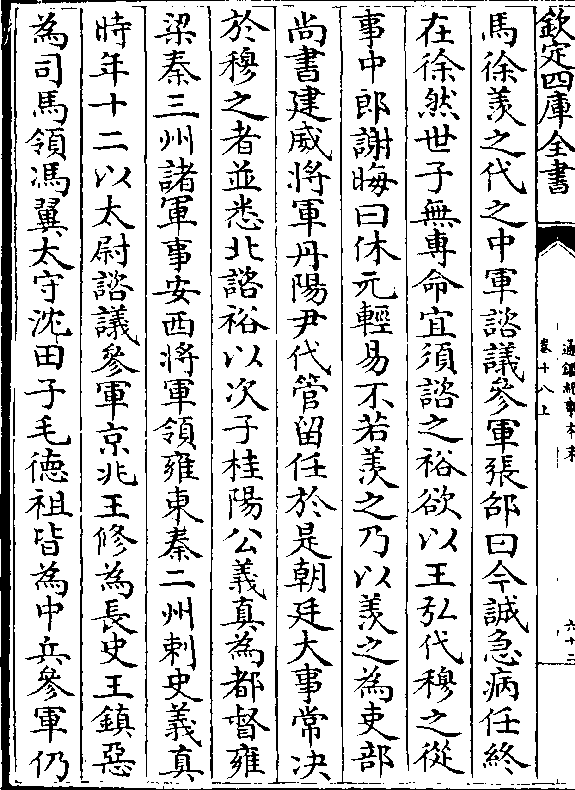 欽定四庫全書
通鑑紀事本末
卷十八上
六十三
馬徐羨之代之中軍諮議參軍張邵曰今誠急病任終
在徐然世子無專命宜須諮之裕欲以王弘代穆之從
事中郎謝晦曰休元輕易不若羨之乃以羨之為吏部
尚書建威將軍丹陽尹代管留任於是朝廷大事常決
於穆之者並悉北諮裕以次子桂陽公義真為都督雍
梁秦三州諸軍事安西將軍領雍東秦二州刺史義真
時年十二以太尉諮議參軍京兆王修為長史王鎮惡
為司馬領馮翊太守沈田子毛德祖皆為中兵參軍仍